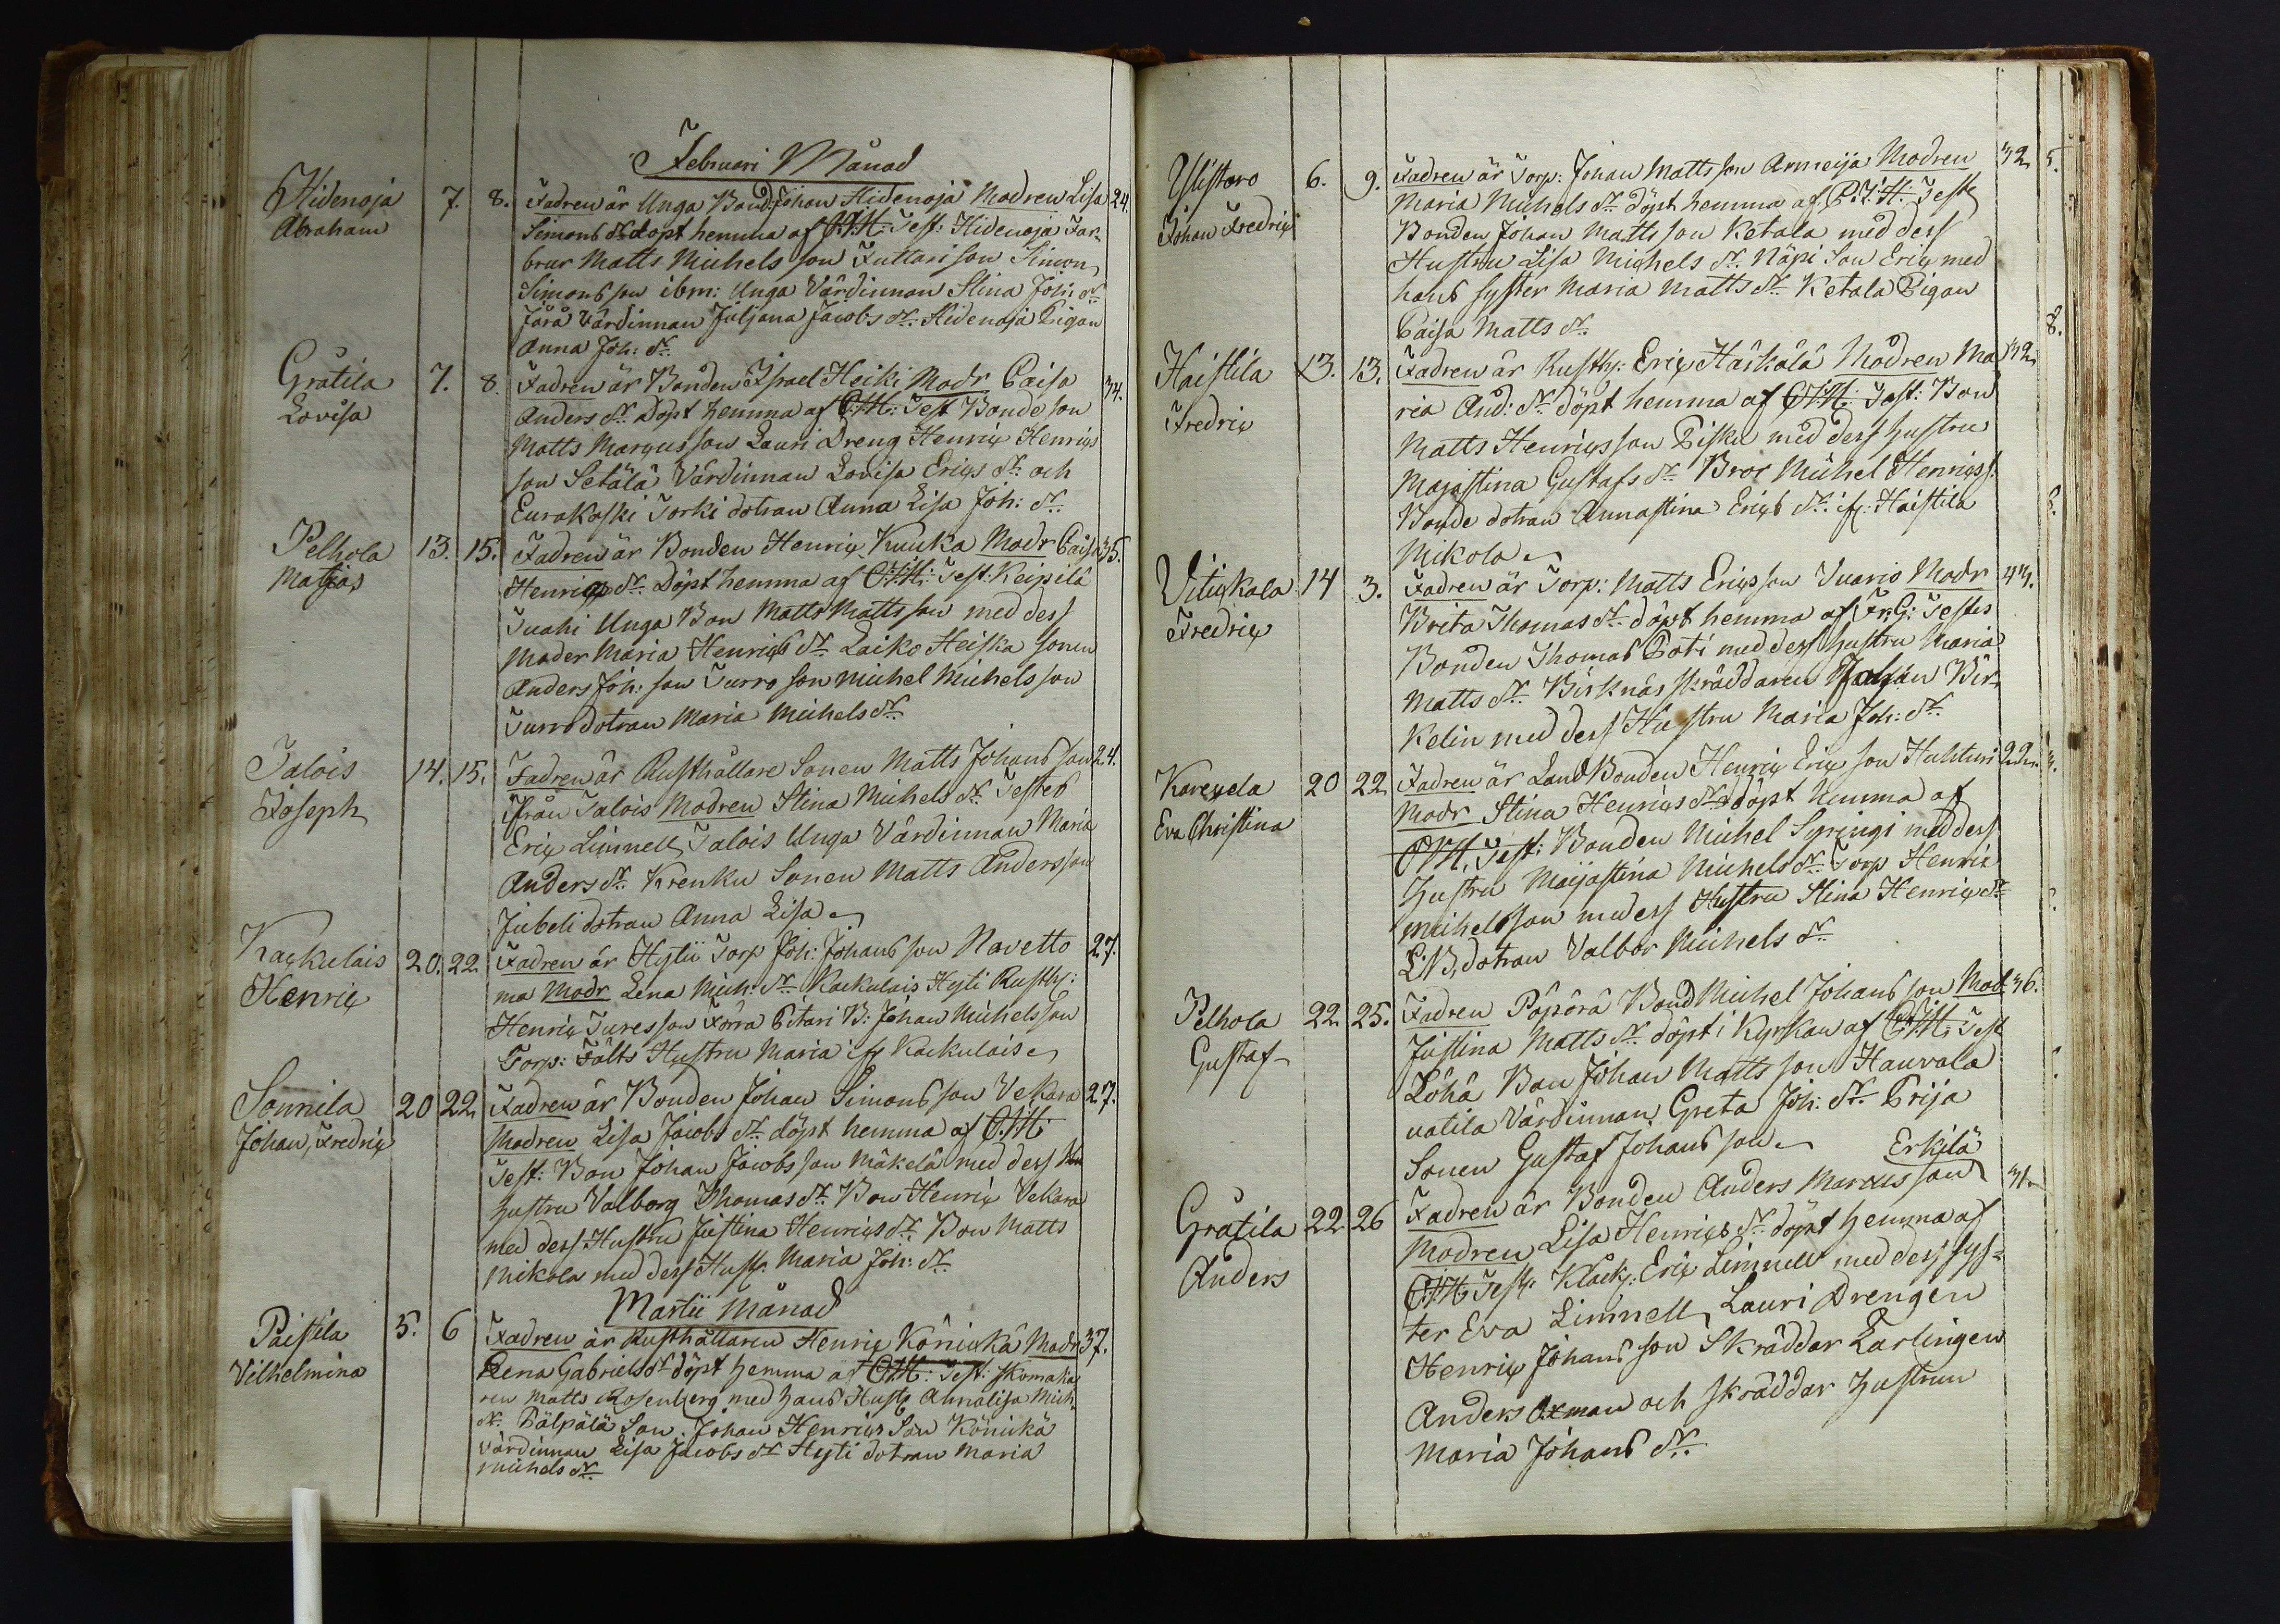 Februari Månad
Hidenoja 7. 8. Fadren är Unga Bond. Johan Hidenoja Modren Lisa 24.
Abraham Simons Dr. döpt hemma af Test: Hidenoja Far-
brar Matts Michels son Futtari son Simon
Simons son ibm: Unga Värdinnan Stina Joh: Dr.
Järä Värdinnan Juljana Jacobs Dr. Hidenoja Pigan
Anna Joh: Dr.
Gråtila 7. 8. Fadren är Bonden Israel Heiki Modr Caisa 34.
Lovisa Anders Dr. Döpt hemma af Test Bonde son
Matts Marcus son Lauri Dreng Henric Henrics
son Setälä Värdinnan Lovisa Erics Dr. och
Eurakoski Torki dotran Anna Lisa Joh: Dr.
Pelhola 13. 15. Fadren är Bonden Henric Kuuka Modr Caisa 35.
Matias Henrics Dr. Döpt hemma af Test: Keipilä
Tuahi Unga Bon Matts Mattsson med dess
Moder Maria Henrics Dr. Laiko Heiska sonen
Anders Joh: son Turro son Michel Michels son
Turro dotran Maria Michels Dr.
Talois 14. 15. Fadren är Rusthållare Sonen Matts Johans son 24.
Joseph ifrån Talois Modren Stina Michels Dr. Testes
Eric Limnell, Talois Unga Värdinnan Maria
Anders Dr. Krenku Sonen Matts Andersson
Jubeli dotran Anna Lisa
Kackulais 20. 22. Fadren är Hytii Torp Joh: Johans son Navetto 27.
Henric ma Modr Lena Mich: Dr. Kackulais Hyti Rusth:
Henric Tures son Förra Pitari B: Johan Michels son
Torp: Fälts Hustru Maria ifr Kackulais
Sonnila 20 22 Fadren är Bonden Johan Simons son Vekara 27.
Johan, Fredric Modren Lisa Jacobs Dr. döpt hemma af
Test: Bon Johan Jacobs son Mäkelä med dess
hustru Valborg Thomas Dr. Bon Henric Vekara
med dess Hustru Justina Henrics Dr. Bon Matts
Mikola med dess Hust. Maria Joh: Dr.
Martii Månad
Paistila 5. 6 Fadren är Rusthållaren Henric Könickä Modr 37.
Vilhelmina Lena Gabriels Dr döpt hemma af Test: skomaka
ren Matts Rosenberg med hans Hust Annalisa Mich
Dr. Pälpälä Son Johan Henrics Son Könickä
Värdinnan Lisa Jacobs Dr Hyti dotran Maria
Michels Dr.
Ylistaro 6. 9. Fadren är Torp: Johan Matts son Anmeija Modren 32 5.
Johan Fredric Maria Michels Dr. döpt hemma af Test
Bonden Johan Matts son Ketala med dess
Hustru Lisa Michels Dr. Näpi Son Eric med
hans syster Maria Matts Dr. Ketala Pigan
Caisa Matts Dr. 8.
Haistila 13. 13. Fadren är Rusth: Eric Härkälä Modren Ma 32
Fredric ria And: Dr. döpt hemma af Test: Bon
Matts Henrics son Pisku med dess hustru
Majastina Gustafs Dr. Bror Michel Henrics s.
Bonde dotran Annastina Erics Dr. ifr: Haistila
Mikola
Vitickala 14 3. Fadren är Torp: Matts Erics son Ivario Modr 44.
Fredric Brita Thomas Dr. döpt hemma af Fr: G: Testes
Bonden Thomas Poti med dess hustru Maria
Matts Dr. Birknäs skräddaren Johan Bir
kelin med dess Hustru Maria Joh: Dr.
Kareyela 20 22 Fadren är LandBonden Henric Eric son Huhturi 22
Eva Christina Modr Stina Henrics Dr. döpt hemma af
Test: Bonden Michel Syringi med dess
hustru Maijastina Michels Dr. Torp Henric
Michelsson med dess Hustru Stina Henrics Dr
L:B, dotran Valbor Michels Dr.
Pelhola 22 25. Fadren Påpårå Bond Michel Johans son Mod. 36.
Gustaf Justina Matts Dr. döpt i Kyrkan af Test
Löhä Bon Johan Matts son Hauvala
vatila Värdinnan Greta Joh: Dr. Prija
Sonen Gustaf Johans son Erkilä
Gråtila 22 26 Fadren är Bonden Anders Marcus son
Anders Modren Lisa Henrics Dr. döpt hemma af
Test: Klock: Eric Limnell med dess sys-
ter Eva Limnell, Lauri Drengen
Henric Johans son Skräddar Lärlingen
Anders Axman och skräddar hustrun
Maria Johans Dr.